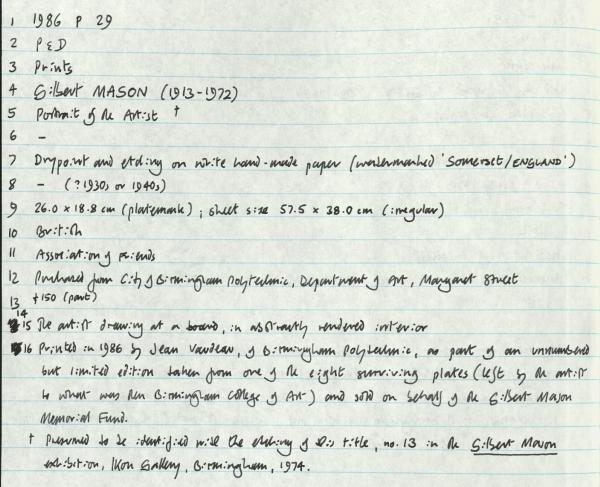 1 1986 P 29
2 P & D
3 Prints
4 Gilbert MASON (1913-1972)
5 Portrait of the Artist †
6 -
7 Drypoint and etching on white hand-made paper (watermarked 'SOMERSET/ENGLAND')
8 - (? 1930s or 1940s)
9 26.0 x 18.8 cm (platemark); sheet size 57.5 x 38.0 cm (irregular)
10 British
11 Association of Friends
12 Purchased from City of Birmingham Polytechnic, Department of Art, Margaret Street
13 £150 (part)
14
15 The artist drawing at a board, in abstractly rendered interior
16 Printed in 1986 by Jean Vaudeau, of Birmingham Polytechnic, as part of an unnumbered
but limited edition taken from one of the eight surviving plates (left by the artist
to what was then Birmingham College of Art) and sold on behalf of the Gilbert Mason
Memorial Fund.
† Presumed to be identified with the etching of this title, no. 13 in the Gilbert Mason
exhibition, Ikon Gallery, Birmingham, 1974.